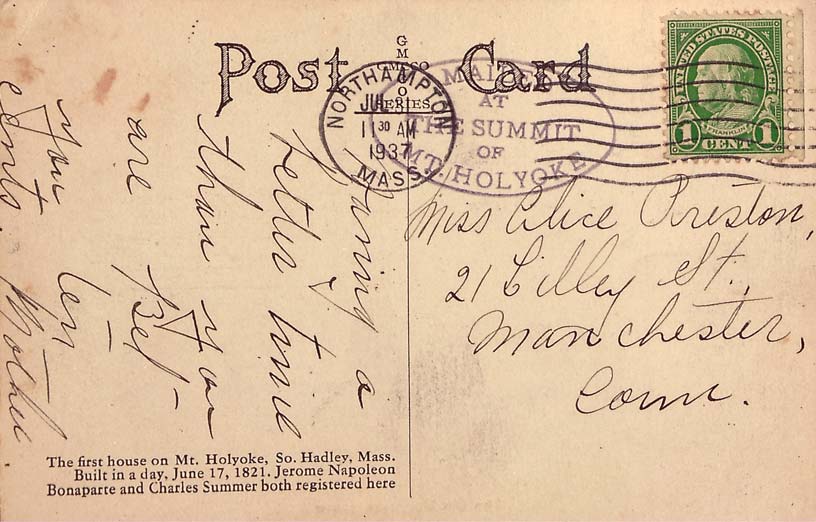 Post Card
G
M
GMMCO
O
SERIES
NORTHAMPTON
JUL
11 30 AM
1937
MASS.
MAILED
AT
THE SUMMIT
OF
MT. HOLYOKE
UNITED STATES POSTAGE
FRANKLIN
1 CENT 1
Miss Alice Preston,
21 Lilley St.,
Manchester,
Conn.
a
better time
than you
are Bet
you ten
cents. Mother
The first house on Mt. Holyoke, So. Hadley, Mass.
Built in a day, June 17, 1821. Jerome Napoleon
Bonaparte and Charles Summer both registered here